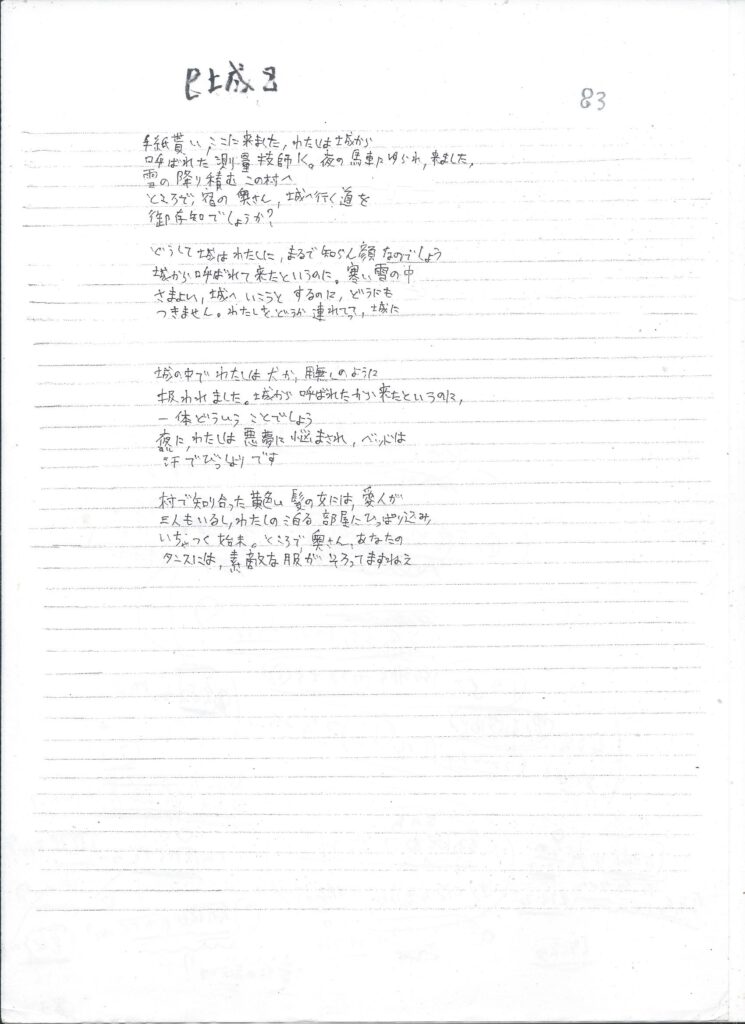 城
83
手紙貰い、ここに来ました、わたしは城から
呼ばれた測量技師K。夜の馬車にゆられ、来ました、
雪の降り積むこの村へ
ところで、宿の奥さん、城へ行く道を
御存知でしょうか?
どうして城はわたしに、まるで知らん顔なのでしょう
城から呼ばれて来たというのに。寒い雪の中
さまよい、城へいこうとするのに、どうにも
つきません。わたしをどうか連れてって、城に
城の中でわたしは犬か、豚のように
扱われました。城から呼ばれたから来たというのに、
一体どういうことでしょう
夜に、わたしは悪夢に悩まされ、ベッドは
汗でびっしょりです
村で知り合った黄色い髪の女には、愛人が
三人もいるし、わたしの泊る部屋にひっぱり込み
いちゃつく始末。ところで、奥さん、あなたの
タンスには、素敵な服がそろってますねえ